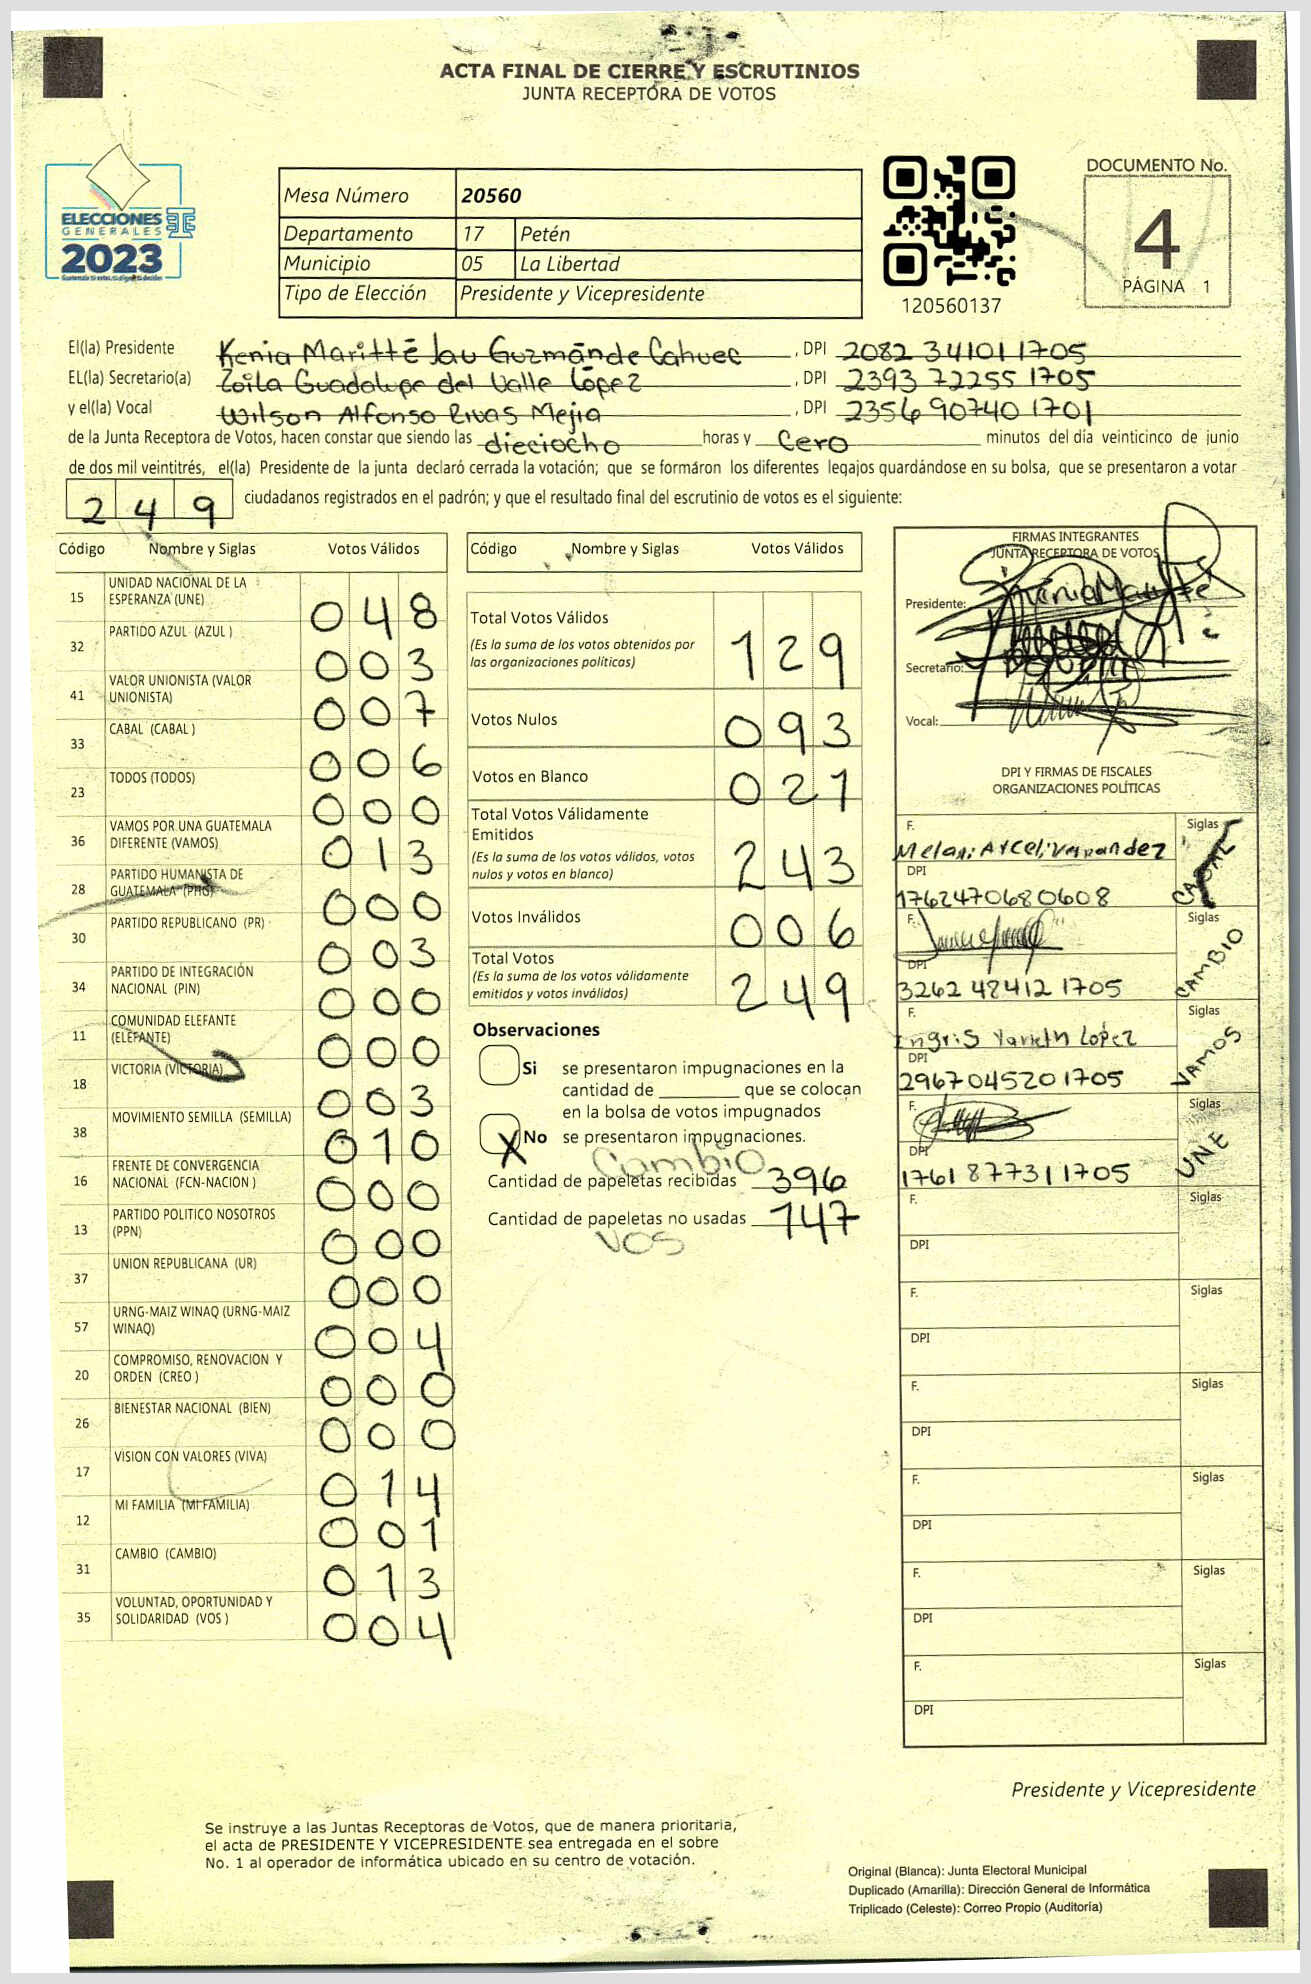 ACTA FINAL DE CIERRE Y ESCRUTINIOS
JUNTA RECEPTORA DE VOTOS
ELECCIONES
GENERALES
2023
Mesa Número 20560
Departamento 17 Petén
Municipio 05 La Libertad
Tipo de Elección Presidente y Vicepresidente
120560137
DOCUMENTO No.
4
PÁGINA 1
El(la) Presidente Kenia Maritté Jau Guzmán de Cahuec , DPI 2082 34101 1705
EL(la) Secretario(a) Zoila Guadalupe del Valle López , DPI 2393 72255 1705
y el(la) Vocal Wilson Alfonso Rivas Mejia , DPI 2356 90740 1701
de la Junta Receptora de Votos, hacen constar que siendo las dieciocho horas y Cero minutos del día veinticinco de junio
de dos mil veintitrés, el(la) Presidente de la junta declaró cerrada la votación; que se formáron los diferentes legajos guardándose en su bolsa, que se presentaron a votar
249 ciudadanos registrados en el padrón; y que el resultado final del escrutinio de votos es el siguiente:
Código Nombre y Siglas Votos Válidos
15 UNIDAD NACIONAL DE LA ESPERANZA (UNE) 048
32 PARTIDO AZUL (AZUL ) 003
41 VALOR UNIONISTA (VALOR UNIONISTA) 007
33 CABAL (CABAL ) 006
23 TODOS (TODOS) 000
36 VAMOS POR UNA GUATEMALA DIFERENTE (VAMOS) 013
28 PARTIDO HUMANISTA DE GUATEMALA (PHG) 000
30 PARTIDO REPUBLICANO (PR) 003
34 PARTIDO DE INTEGRACIÓN NACIONAL (PIN) 000
11 COMUNIDAD ELEFANTE (ELEFANTE) 000
18 VICTORIA (VICTORIA) 003
38 MOVIMIENTO SEMILLA (SEMILLA) 010
16 FRENTE DE CONVERGENCIA NACIONAL (FCN-NACION ) 000
13 PARTIDO POLITICO NOSOTROS (PPN) 000
37 UNION REPUBLICANA (UR) 000
57 URNG-MAIZ WINAQ (URNG-MAIZ WINAQ) 004
20 COMPROMISO, RENOVACION Y ORDEN (CREO ) 000
26 BIENESTAR NACIONAL (BIEN) 000
17 VISION CON VALORES (VIVA) 014
12 MI FAMILIA (MI FAMILIA) 001
31 CAMBIO (CAMBIO) 013
35 VOLUNTAD, OPORTUNIDAD Y SOLIDARIDAD (VOS ) 004
Código Nombre y Siglas Votos Válidos
Total Votos Válidos 129
(Es la suma de los votos obtenidos por
las organizaciones políticas)
Votos Nulos 093
Votos en Blanco 021
Total Votos Válidamente
Emitidos 243
(Es la suma de los votos válidos, votos
nulos y votos en blanco)
Votos Inválidos 006
Total Votos 249
(Es la suma de los votos válidamente
emitidos y votos inválidos)
Observaciones
Si se presentaron impugnaciones en la
cantidad de ________ que se colocan
en la bolsa de votos impugnados
X No se presentaron impugnaciones.
Cambio
Cantidad de papeletas recibidas 396
Cantidad de papeletas no usadas 147
VOS
FIRMAS INTEGRANTES
JUNTA RECEPTORA DE VOTOS
Presidente:
Secretario:
Vocal:
DPI Y FIRMAS DE FISCALES
ORGANIZACIONES POLÍTICAS
F. Siglas
CABAL
DPI
1762470680608
F. Siglas
CAMBIO
DPI
3262 48412 1705
F. Siglas
Ingris Yarieth López
VAMOS
DPI
2967045201705
F. Siglas
UNE
DPI
1761 87731 1705
F. Siglas
DPI
F. Siglas
DPI
F. Siglas
DPI
F. Siglas
DPI
F. Siglas
DPI
F. Siglas
DPI
Presidente y Vicepresidente
Se instruye a las Juntas Receptoras de Votos, que de manera prioritaria,
el acta de PRESIDENTE Y VICEPRESIDENTE sea entregada en el sobre
No. 1 al operador de informática ubicado en su centro de votación.
Original (Blanca): Junta Electoral Municipal
Duplicado (Amarilla): Dirección General de Informática
Triplicado (Celeste): Correo Propio (Auditoría)